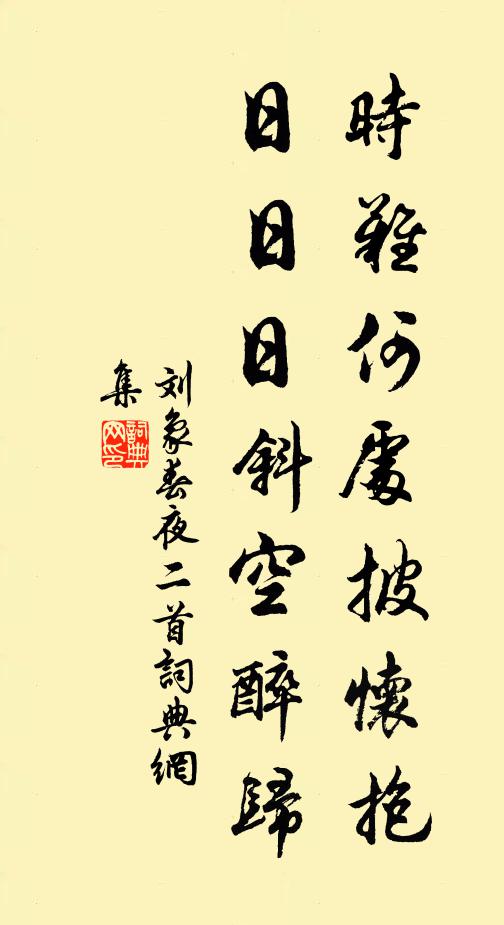 時難何處披懷抱
日日日斜空醉歸
刘象春夜二首詞典網
集
詞典網印